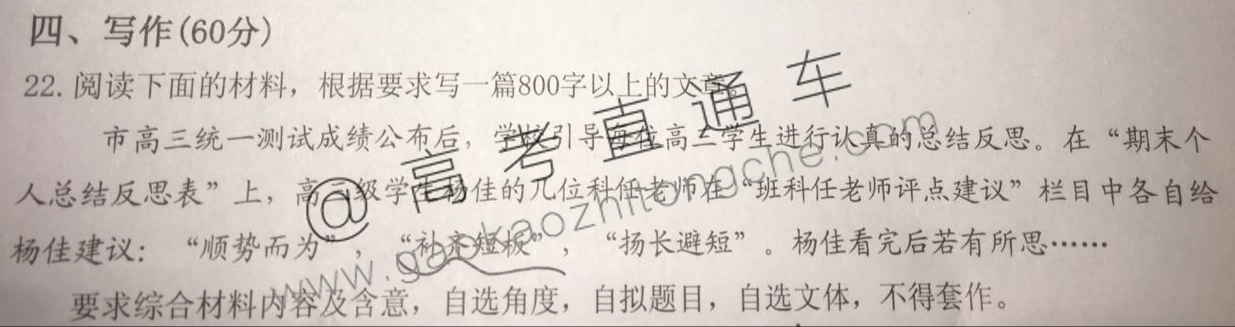 四、写作(60分)
22. 阅读下面的材料，根据要求写一篇800字以上的文章。
市高三统一测试成绩公布后，学校引导每位高三学生进行认真的总结反思。在“期末个
人总结反思表”上，高三级学生杨佳的几位科任老师在“班科任老师评点建议”栏目中各自给
杨佳建议：“顺势而为”，“补齐短板”，“扬长避短”。杨佳看完后若有所思……
要求综合材料内容及含意，自选角度，自拟题目，自选文体，不得套作。
@高考直通车
www.gaokaozhitongche.com